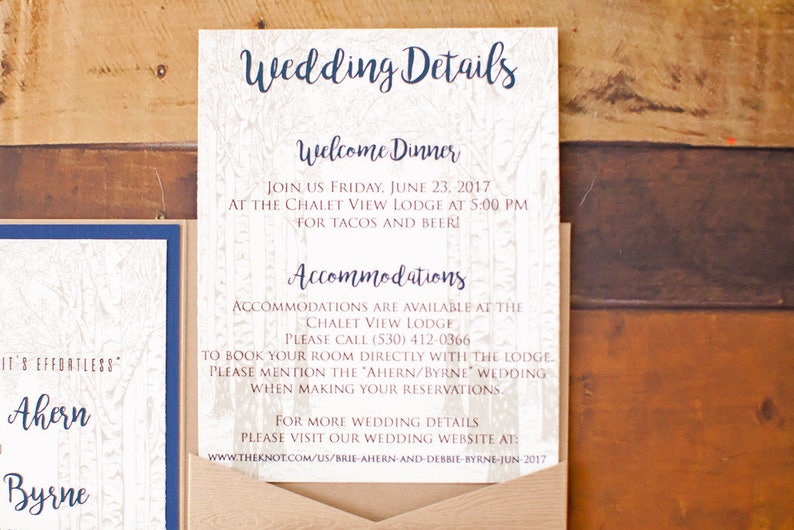 Wedding Details
Welcome Dinner
Join us Friday, June 23, 2017
At the Chalet View Lodge at 5:00 PM
for tacos and beer!
Accommodations
Accommodations are available at the
Chalet View Lodge
Please call (530) 412-0366
to book your room directly with the lodge.
Please mention the "Ahern/Byrne" wedding
when making your reservations.
For more wedding details
please visit our wedding website at:
www.theknot.com/us/brie-ahern-and-debbie-byrne-jun-2017
it's effortless"
Ahern
Byrne